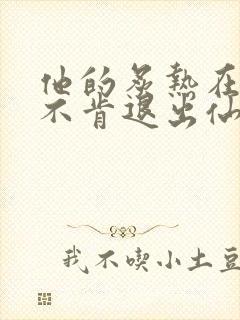 他的炙熱在
不肯退出仙
我不喫小土豆